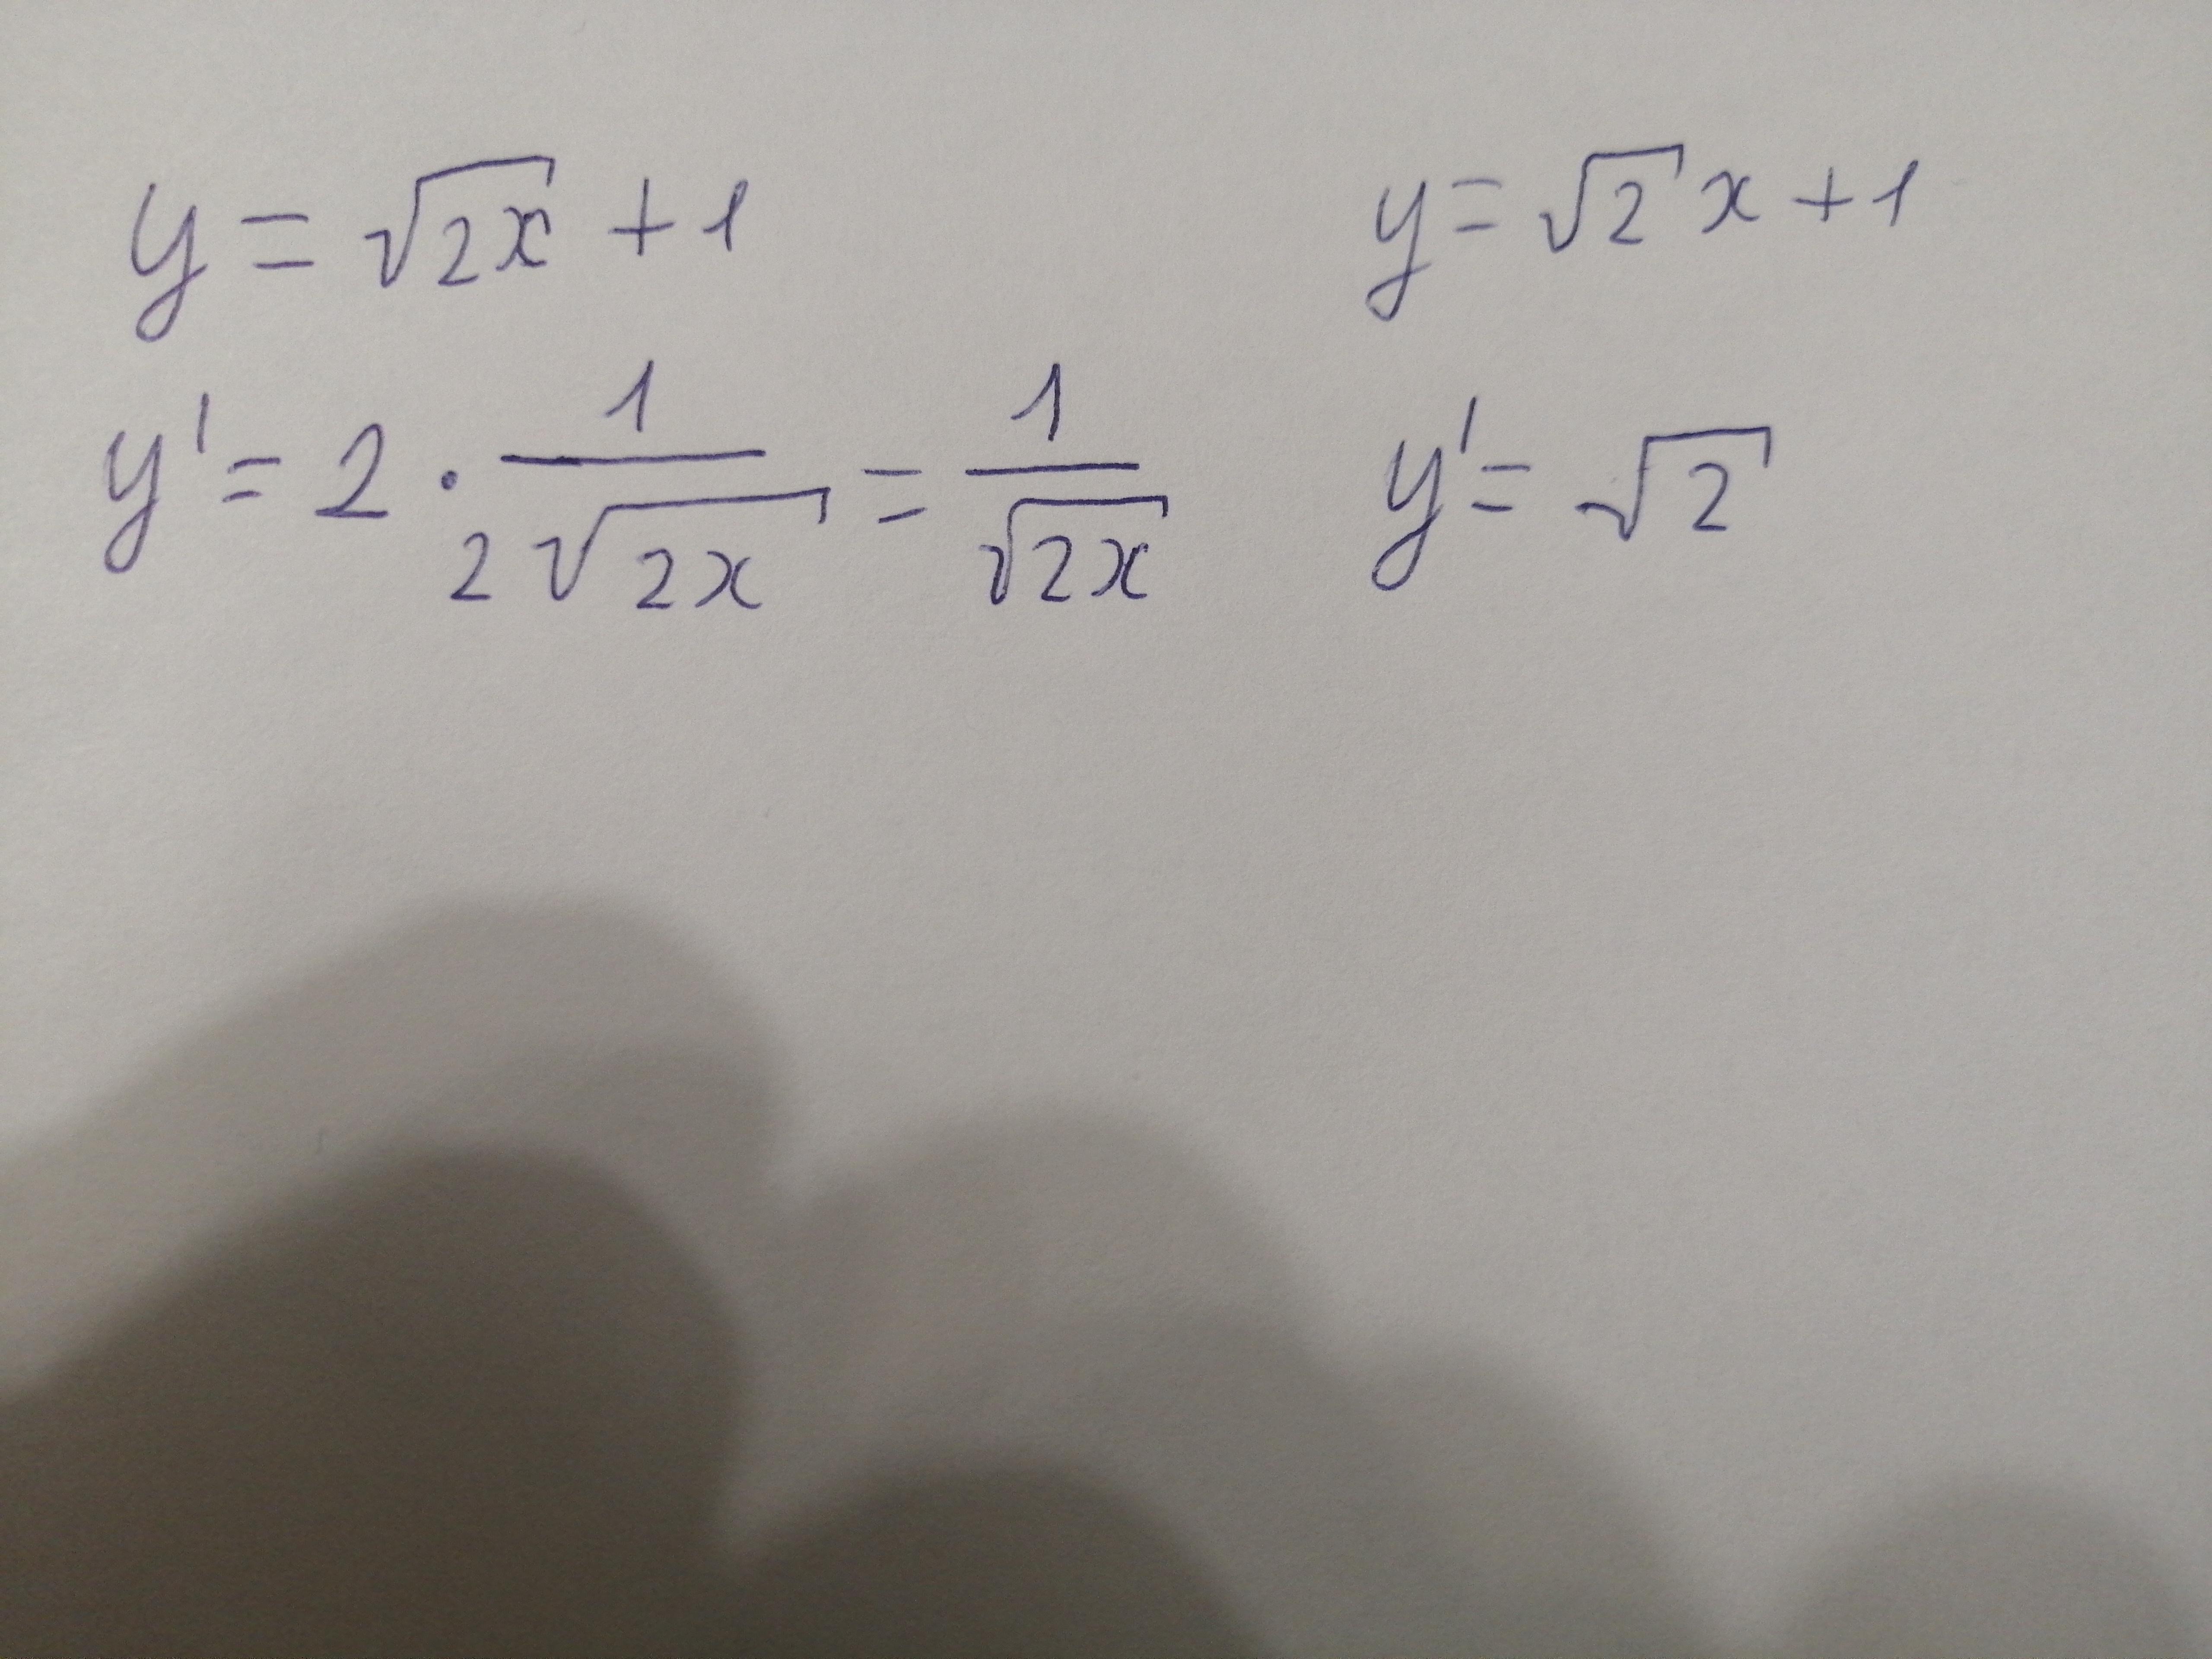 y = √2x + 1
y' = 2 · 1/(2√2x) = 1/√2x
y = √2 x + 1
y' = √2